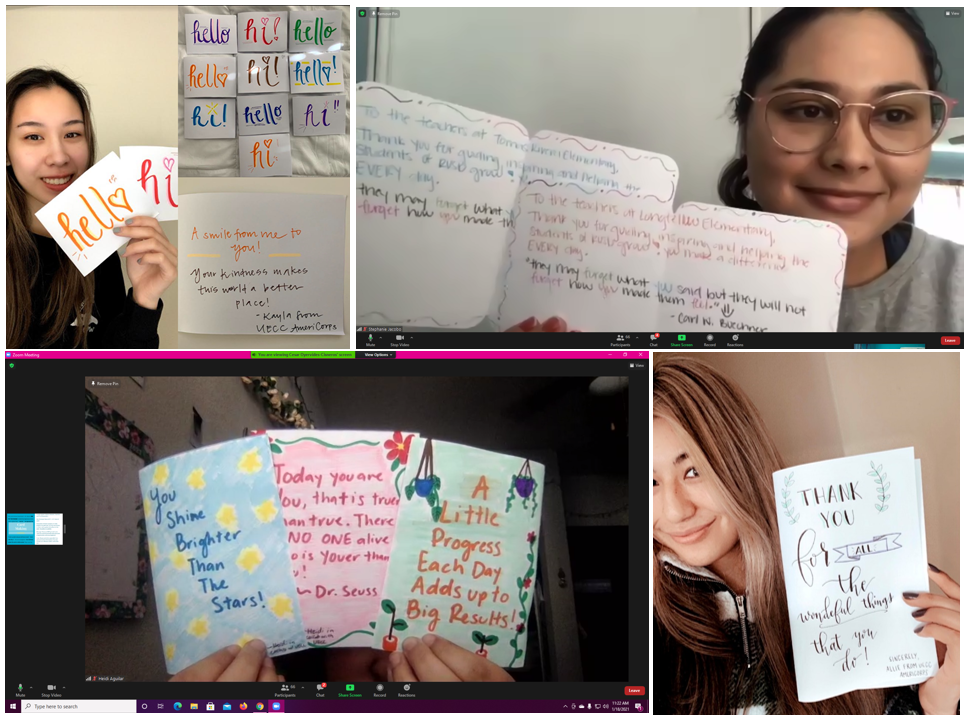 hello
hi!
hello
hello
hi!
hello!
hi!
hello
hi"
hi
hello
hi
A smile from me to
you!
Your kindness makes
this world a better
place!
- Kayla from
UECC AmeriCorps
Remove Pin
View
To the teachers at
Elementary,
Thank you for guiding
and helping the
Students of RUSD
EVERY day.
"they may forget what
forget how you made
To the teachers at Longfellow Elementary,
Thank you for guiding, inspiring and helping the
Students of RUSD grow! You make a difference
EVERY day.
"they may forget what you said but they will not
forget how you made them feel."
- Carl W. Buechner
Stephanie Jacobo
Mute
Stop Video
Participants
Chat
Share Screen
Record
Reactions
Leave
Zoom Meeting
View Options
View
Remove Pin
You
Shine
Brighter
Than
The
Stars!
Today you are
You, that is true
than true. There
NO ONE alive
is Youer than
~ Dr. Seuss
A
Little
Progress
Each Day
Adds up to
Big Results!
Heidi Aguilar
Mute
Stop Video
Participants
Chat
Share Screen
Record
Reactions
Leave
Type here to search
11:22 AM
1/18/2021
THANK
YOU
for ALL
the
wonderful things
that you
do!
SINCERELY,
ALLIE FROM UECC
AMERICORPS